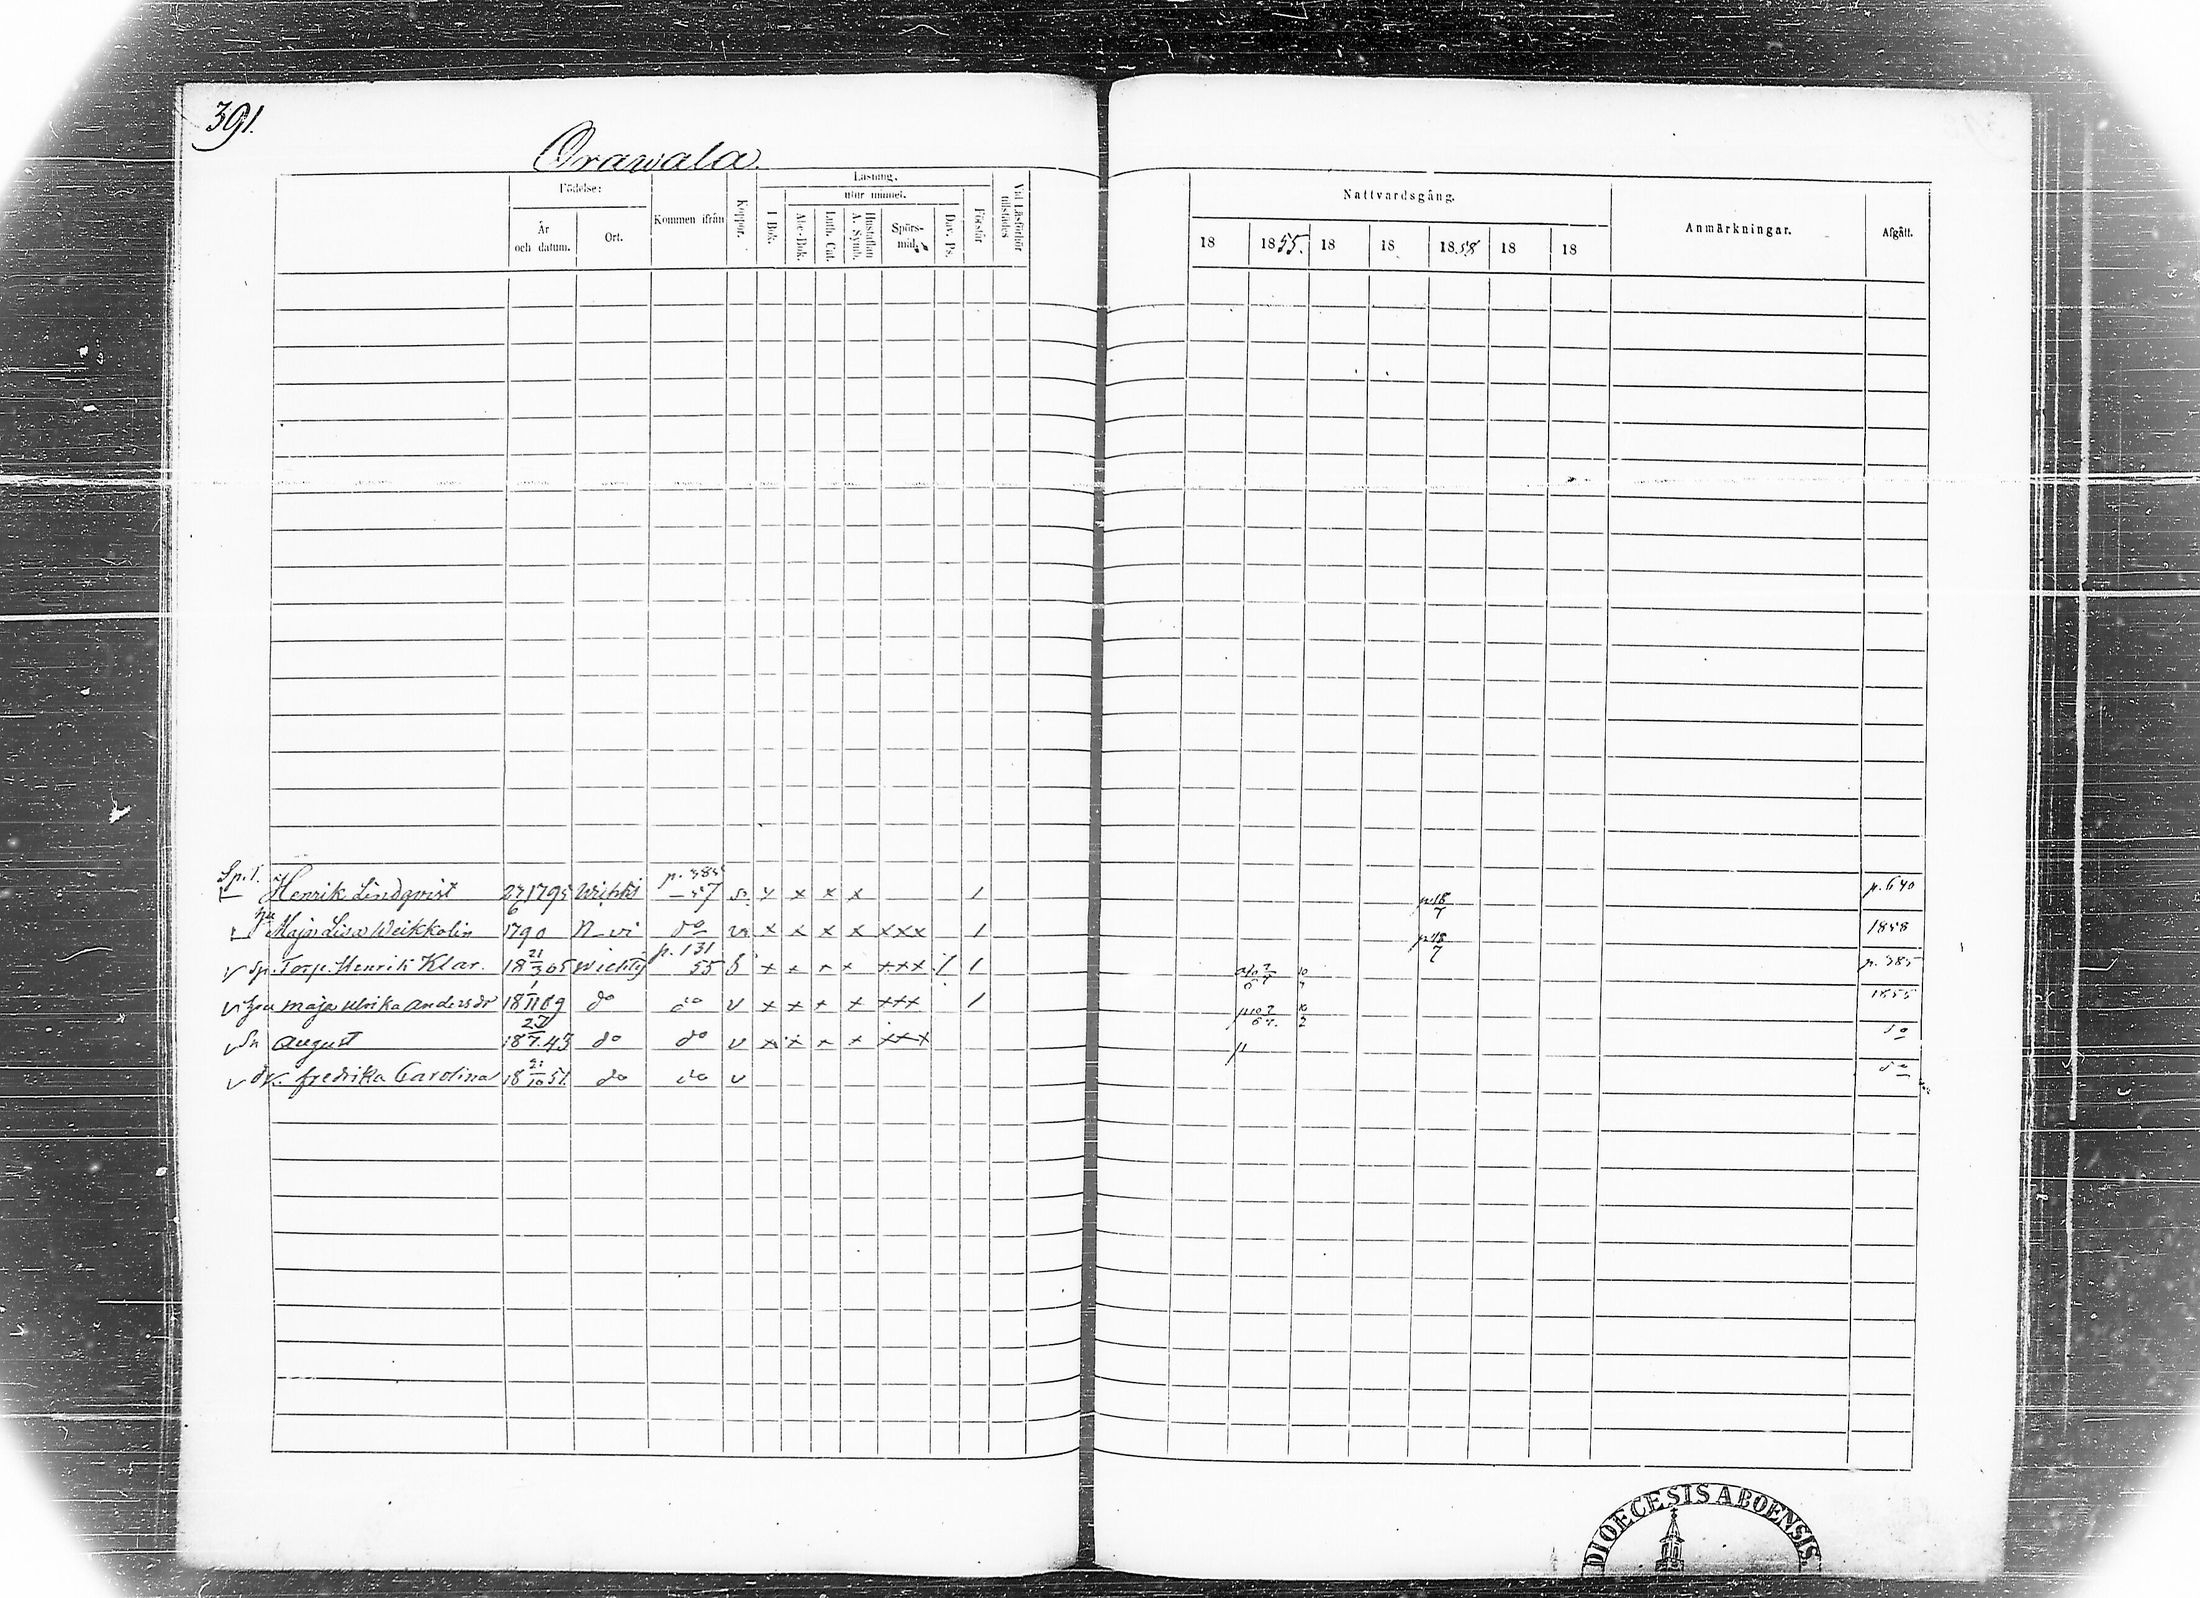 391.
Orawala.
Födelse: Kommen ifrån Koppor. Läsning. Vid Läsförhör tillstädes
utur minnet.
År och datum. Ort. I Bok. Abc-Bok. Luth. Cat. Hustaflan A. Symb. Spörsmål. Dav. Ps. Förstår
Nattvardsgång. Anmärkningar. Afgått.
18 1855. 18 18 1858 18 18
Sp. T. p. 385
Henrik Lindqvist 27/6 1795 Wichtis – 57 x x x 1 p 18/7 p. 640
hu Maja Lisa Weikkolin 1790 N–vi do x x x x xxx 1 p 18/7 1858
p. 131
v Sp. Torp. Henrik Klar. 18 21/3 05 Wichty 55 x x x x xxx 1 p. 385
v hu Maja Ulrika Andersdr 18 1/11 09 do do v x x x x xxx 1 1855
v Sn August 18 27/7 43 do do v x x x x xxx do
v dr. Fredrika Carolina 18 21/10 51. do do v do
DIOECESIS ABOENSIS.